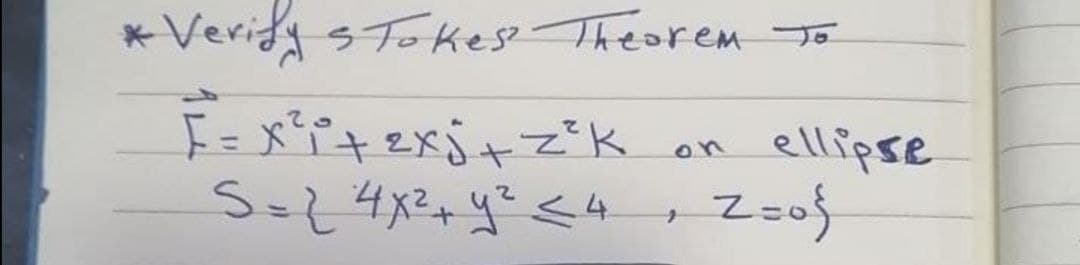 * Verify sTokes Theorem To
F⃗ = x²i + 2xj + z²k on ellipse
S = { 4x² + y² ≤ 4 , z = 0 }